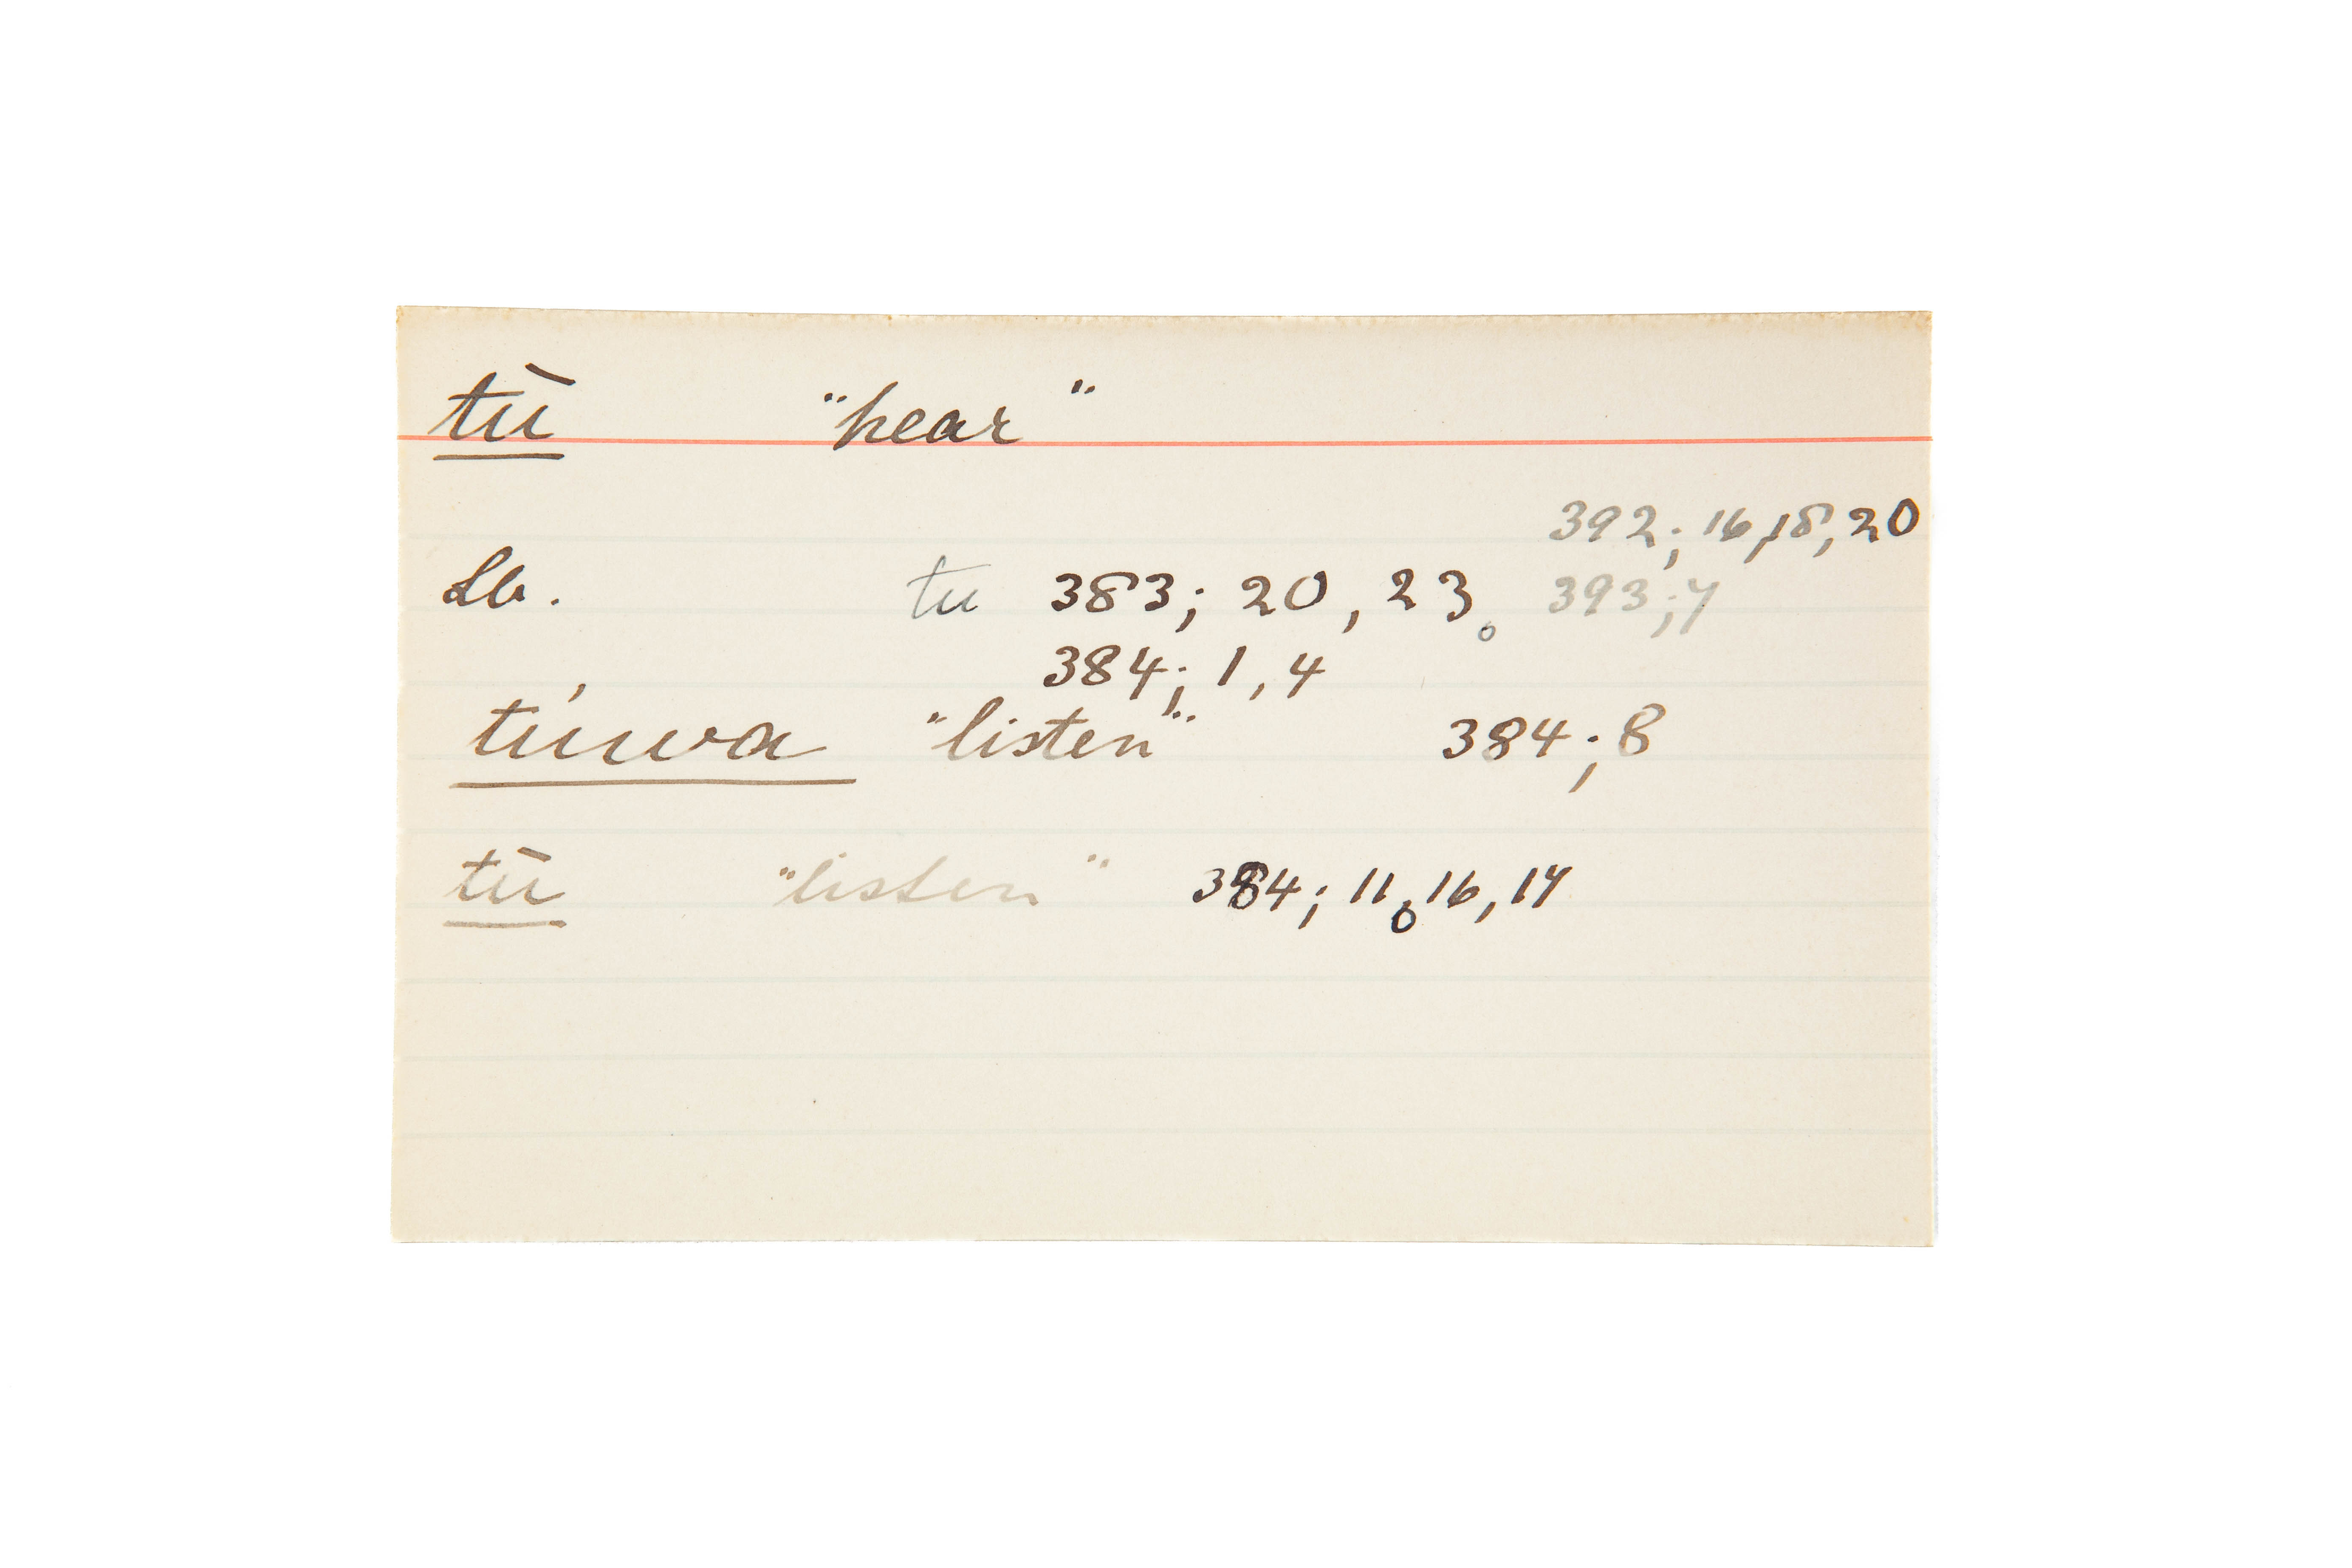 tū "hear"
392; 16, 18, 20
Lb. tu 383; 20, 23. 393; 7
384; 1, 4
túwa "listen" 384; 8
tū "listen" 384; 11, 16, 17